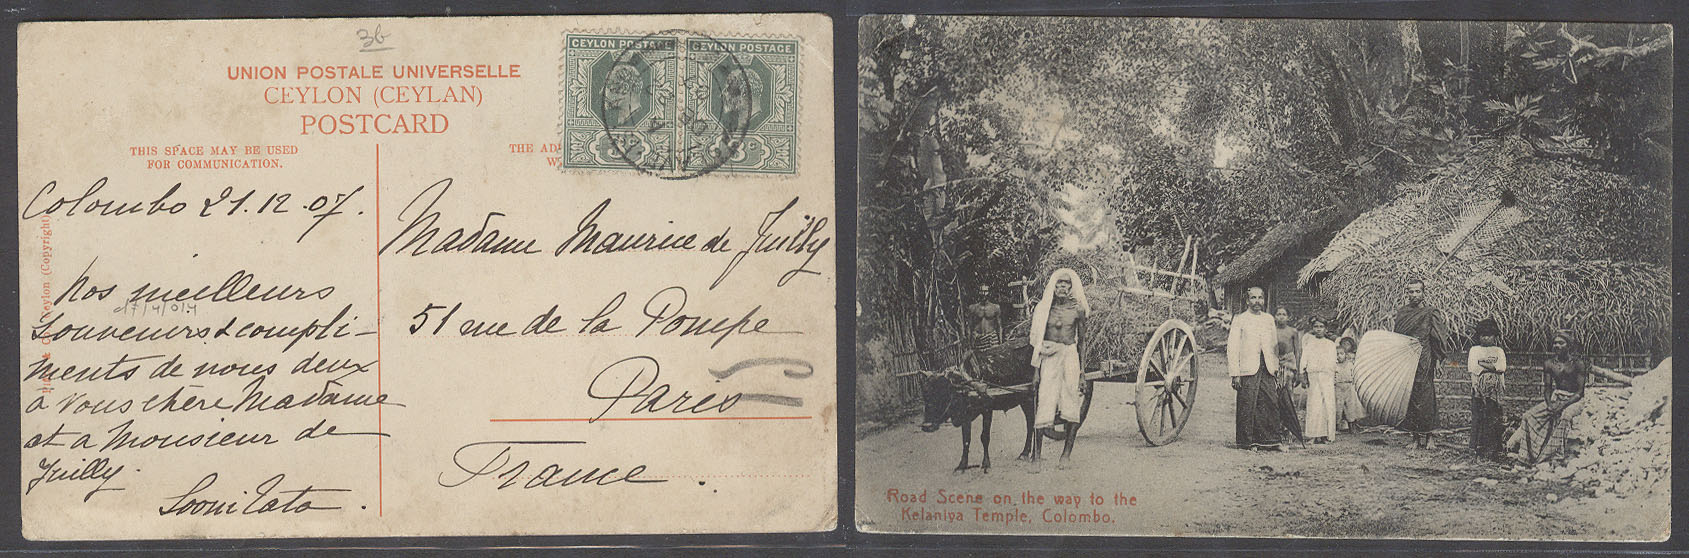 3b
UNION POSTALE UNIVERSELLE
CEYLON (CEYLAN)
POSTCARD
THIS SPACE MAY BE USED
FOR COMMUNICATION.
THE AD
CEYLON POSTAGE
CEYLON POSTAGE
Colombo 21.12.07.
Nos meilleurs
souvenirs & compli-
ments de nous deux
a vous chère Madame
et a Monsieur de
Juilly.
Sooni Tata.
Madame Maurice de Juilly
51 rue de la Pompe
Paris
France.
Ceylon (Copyright)
Road Scene on the way to the
Kelaniya Temple, Colombo.